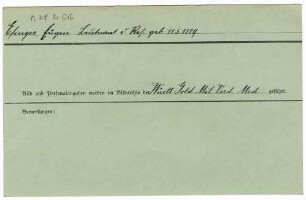 M 707
Efinger, Eugen Leutnant d. Res. geb. 11.5.1889.
Bild und Personalangaben wurden im Bildarchiv der Württ. Gold. Mil. Verd. Med. geführt.
Bemerkungen: